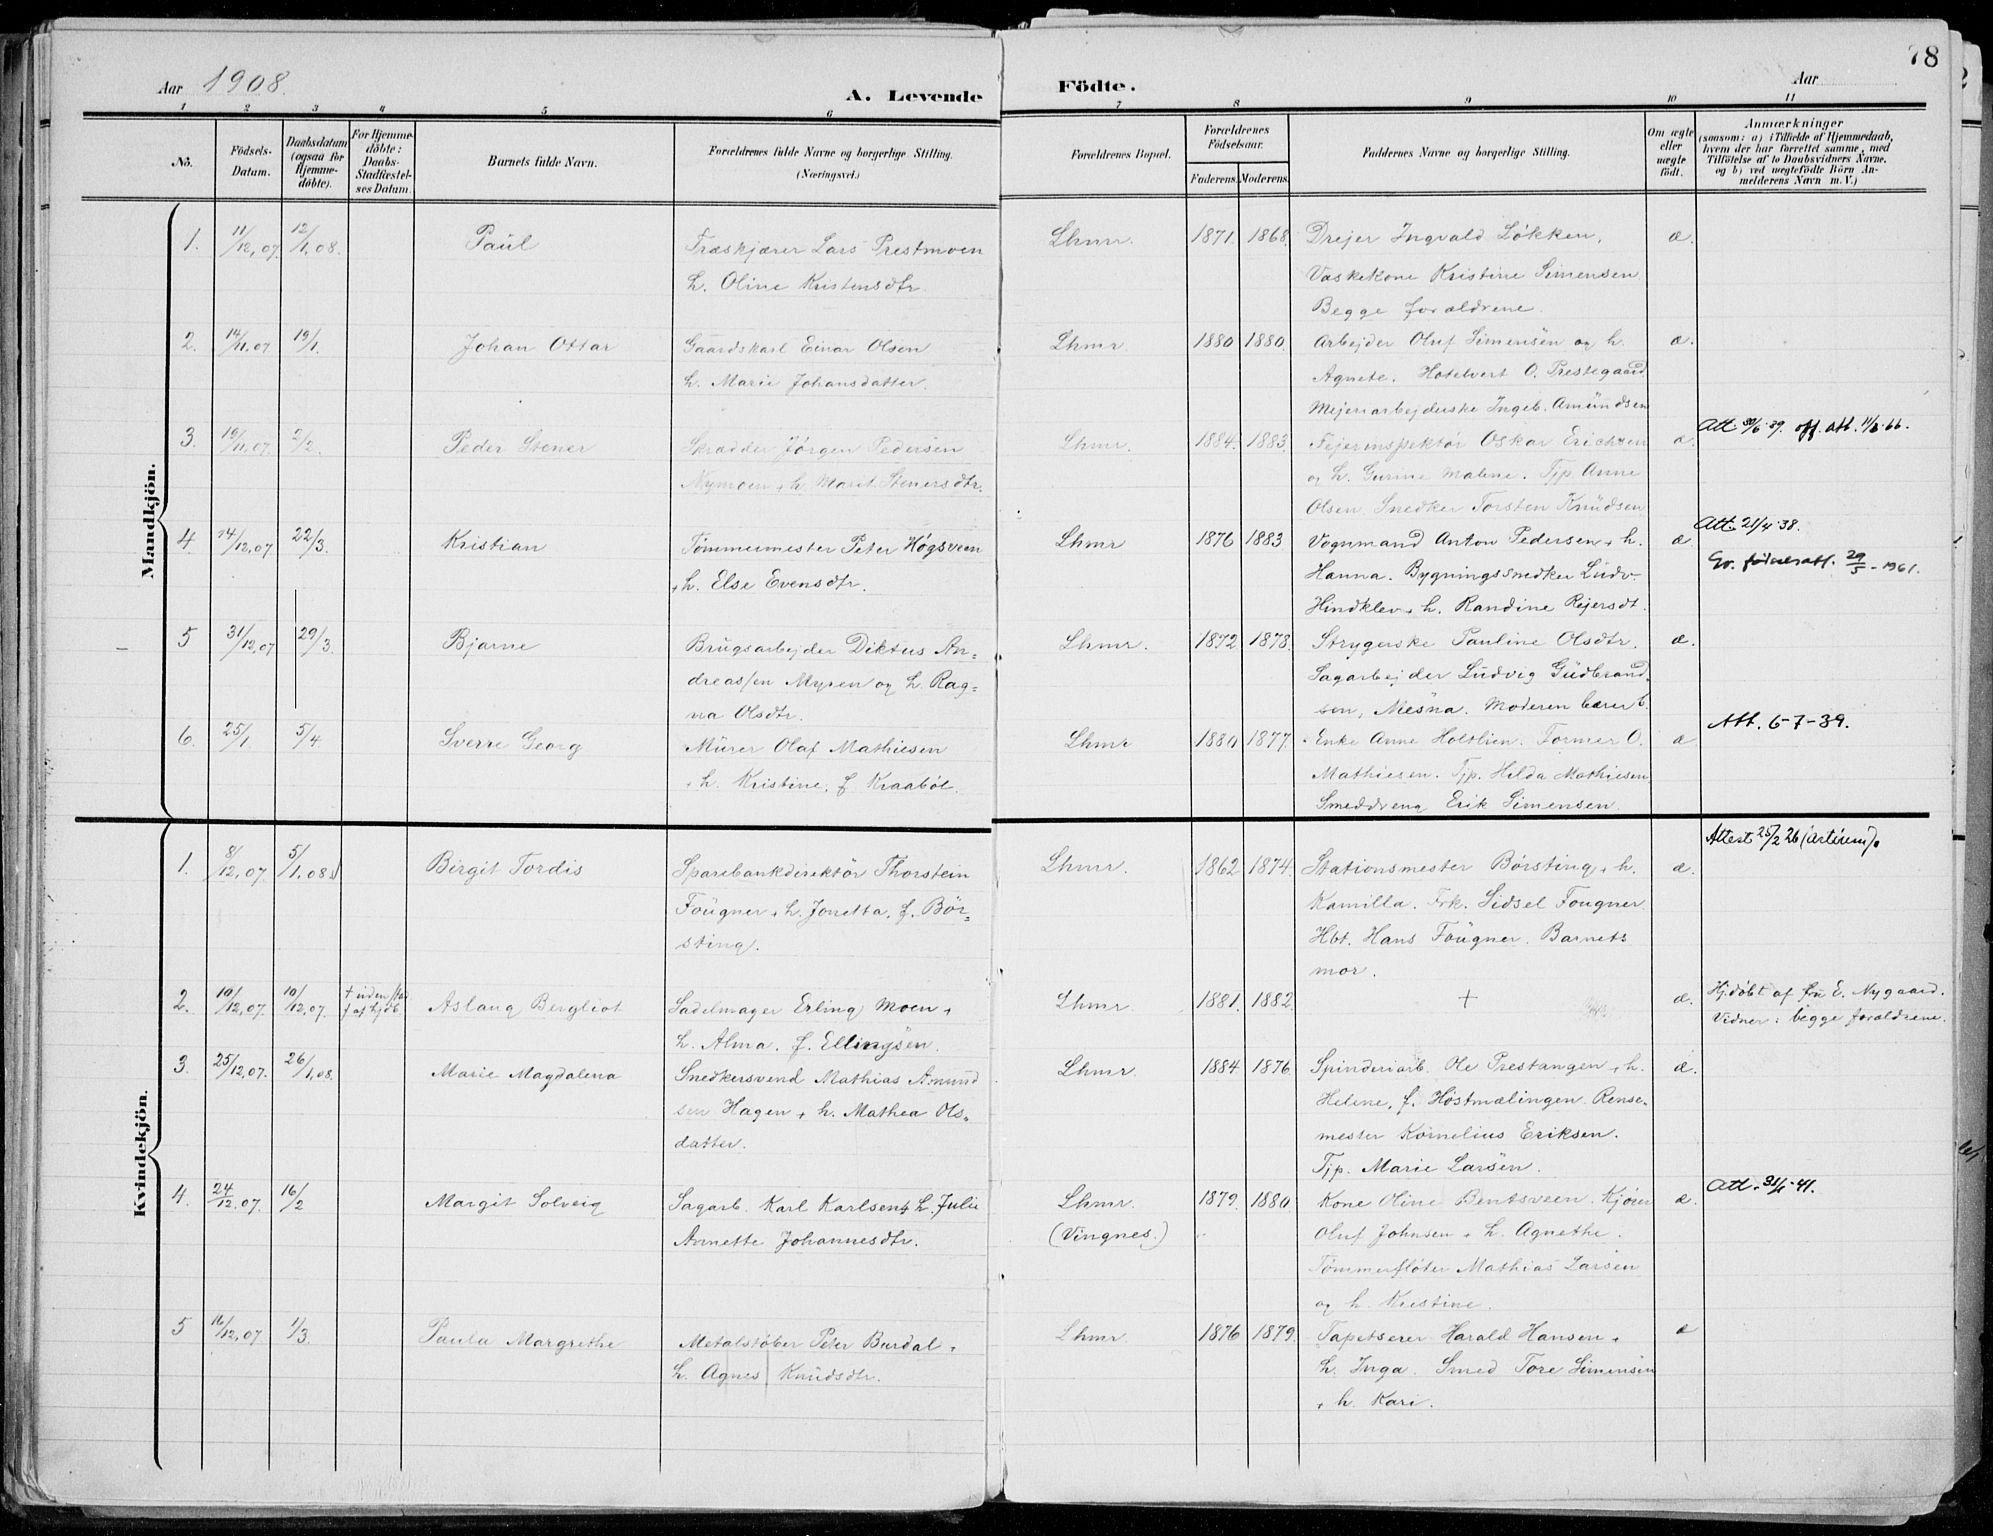 Aar 1908.
A. Levende Födte.
Aar
78
1 2 3 4 5 6 7 8 9 10 11
No.
Födsels-Datum.
Daabsdatum (ogsaa for Hjemme-döbte).
For Hjemme-döbte: Daabs-Stadfæstel-ses Datum.
Barnets fulde Navn.
Forældrenes fulde Navne og borgerlige Stilling. (Næringsvei.)
Forældrenes Bopæl.
Forældrenes Födselsaar.
Faderens. Moderens.
Faddernes Navne og borgerlige Stilling.
Om ægte eller uægte födt.
Anmærkninger
(saasom: a) i Tilfælde af Hjemmedaab, hvem der har forrettet samme, med Tilföielse af to Daabsvidners Navne, og b) ved uægtefödte Börn An-melderens Navn m. V.)
Mandkjön.
1. 11/12,07. 12/1,08. Paul Træskjærer Lars Prestmoen Lhmr. 1871. 1868. Drejer Ingvald Løkken, æ.
h. Oline Kristensdtr. Vaskekone Kristine Simensen
Begge forældrene.
2. 14/11,07 19/1. Johan Ottar Gaardskarl Einar Olsen Lhmr 1880 1880. Arbejder Oluf Simensen og h. æ.
h. Marie Johansdatter. Agnete. Hotelvert O. Prestegaard
Mejeriarbejderske Ingeb. Amundsen
3. 19/11,07. 2/2. Peder Stener Skrædder Jørgen Pedersen Lhmr. 1884. 1883. Fejerinspektør Oskar Erichsen æ. Att. 30/6-39. off. att. 11/6-66.
Nymoen + h. Marit Stenersdtr. og h. Gurine Malene. Tjp. Anne
Olsen. Snedker Torsten Knudsen
4. 14/12,07 22/3. Kristian Tømmermester Peter Høgsveen Lhmr 1876 1883 Vognmand Anton Pedersen + h. æ. Att. 21/4-38.
+ h. Else Evensdtr. Hanna. Bygningssnedker Ludv. Gr. fødselsatt. 29/5-1961.
Hindklev + h. Randine Rejersdt.
5 31/12,07 29/3. Bjarne Brugsarbejder Diktus An- Lhmr. 1872 1878. Strygerske Pauline Olsdtr. æ.
dreassen Myren og h. Rag- Sagarbejder Ludvig Gudbrand-
na Olsdtr. sen, Mesna. Moderen bærer b.
6. 25/1 5/4. Sverre Georg Murer Olaf Mathiesen Lhmr 1880 1877. Enke Anne Holtlien. Former O. æ Att. 6-7-39.
+ h. Kristine, f. Kraabøl. Mathiesen. Tjp. Hilda Mathiesen
Smeddreng Erik Simensen.
Kvindekjön.
1. 8/12,07. 5/1,08. Birgit Tordis Sparebankdirektör Thorstein Lhmr. 1862 1874. Stationsmester Børsting + h. æ. Attest 25/2 26 (artium).
Fougner + h. Jonetta, f. Bör- Kamilla. Frk. Sidsel Fougner.
sting. Hbt. Hans Fougner. Barnets
mor.
2. 10/12,07 10/12,07. + uden stad f. af hjdb. Aslaug Bergliot Sadelmager Erling Moen + Lhmr 1881. 1882. + æ. Hjdøbt af fru E. Nygaard.
h. Alma, f. Ellingsen. Vidner: begge forældrene.
3. 25/12,07. 26/1,08. Marie Magdalena Snedkersvend Mathias Amund Lhmr. 1884 1876. Spinderiarb. Ole Prestangen + h. æ.
sen Hagen + h. Mathea Ols- Helene, f. Høstmælingen. Rense-
datter. mester Kornelius Eriksen.
Tjp. Marie Larsen.
4. 24/12,07. 16/2 Margit Solveig Sagarb. Karl Karlsen + h. Julie Lhmr. 1879. 1880 Kone Oline Bentsveen. Kjører æ. Att. 31/1-41.
Annette Johannesdtr. (Vingnes.) Oluf Johnsen + h. Agnethe.
Tømmerfløter Mathias Larsen
og h. Kristine.
5 16/12,07 1/3. Paula Margrethe Metalstøber Peter Burdal + Lhmr. 1876 1879. Tapetserer Harald Hansen + æ
h. Agnes Knudsdtr. h. Inga. Smed Tore Simensen
+ h. Kari.